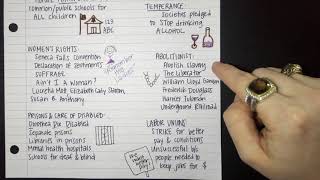 common/public schools for
ALL children
123
ABC
WOMEN'S RIGHTS
Seneca Falls Convention
Declaration of Sentiments
SUFFRAGE
Ain't I a Woman?
Lucretia Mott, Elizabeth Cady Stanton,
Susan B. Anthony
PRISONS & CARE OF DISABLED
Dorothea Dix
Separate prisons
Libraries in prisons
Mental health hospitals
Schools for deaf & blind
TEMPERANCE
Societies pledged to
STOP drinking
ALCOHOL
ABOLITIONIST
Abolish slavery
The Liberator
William Lloyd Garrison
Frederick Douglass
Harriet Tubman
Underground Railroad
LABOR UNIONS
STRIKE for better
pay & conditions
Unsuccessful b/c
people needed to
keep jobs for $